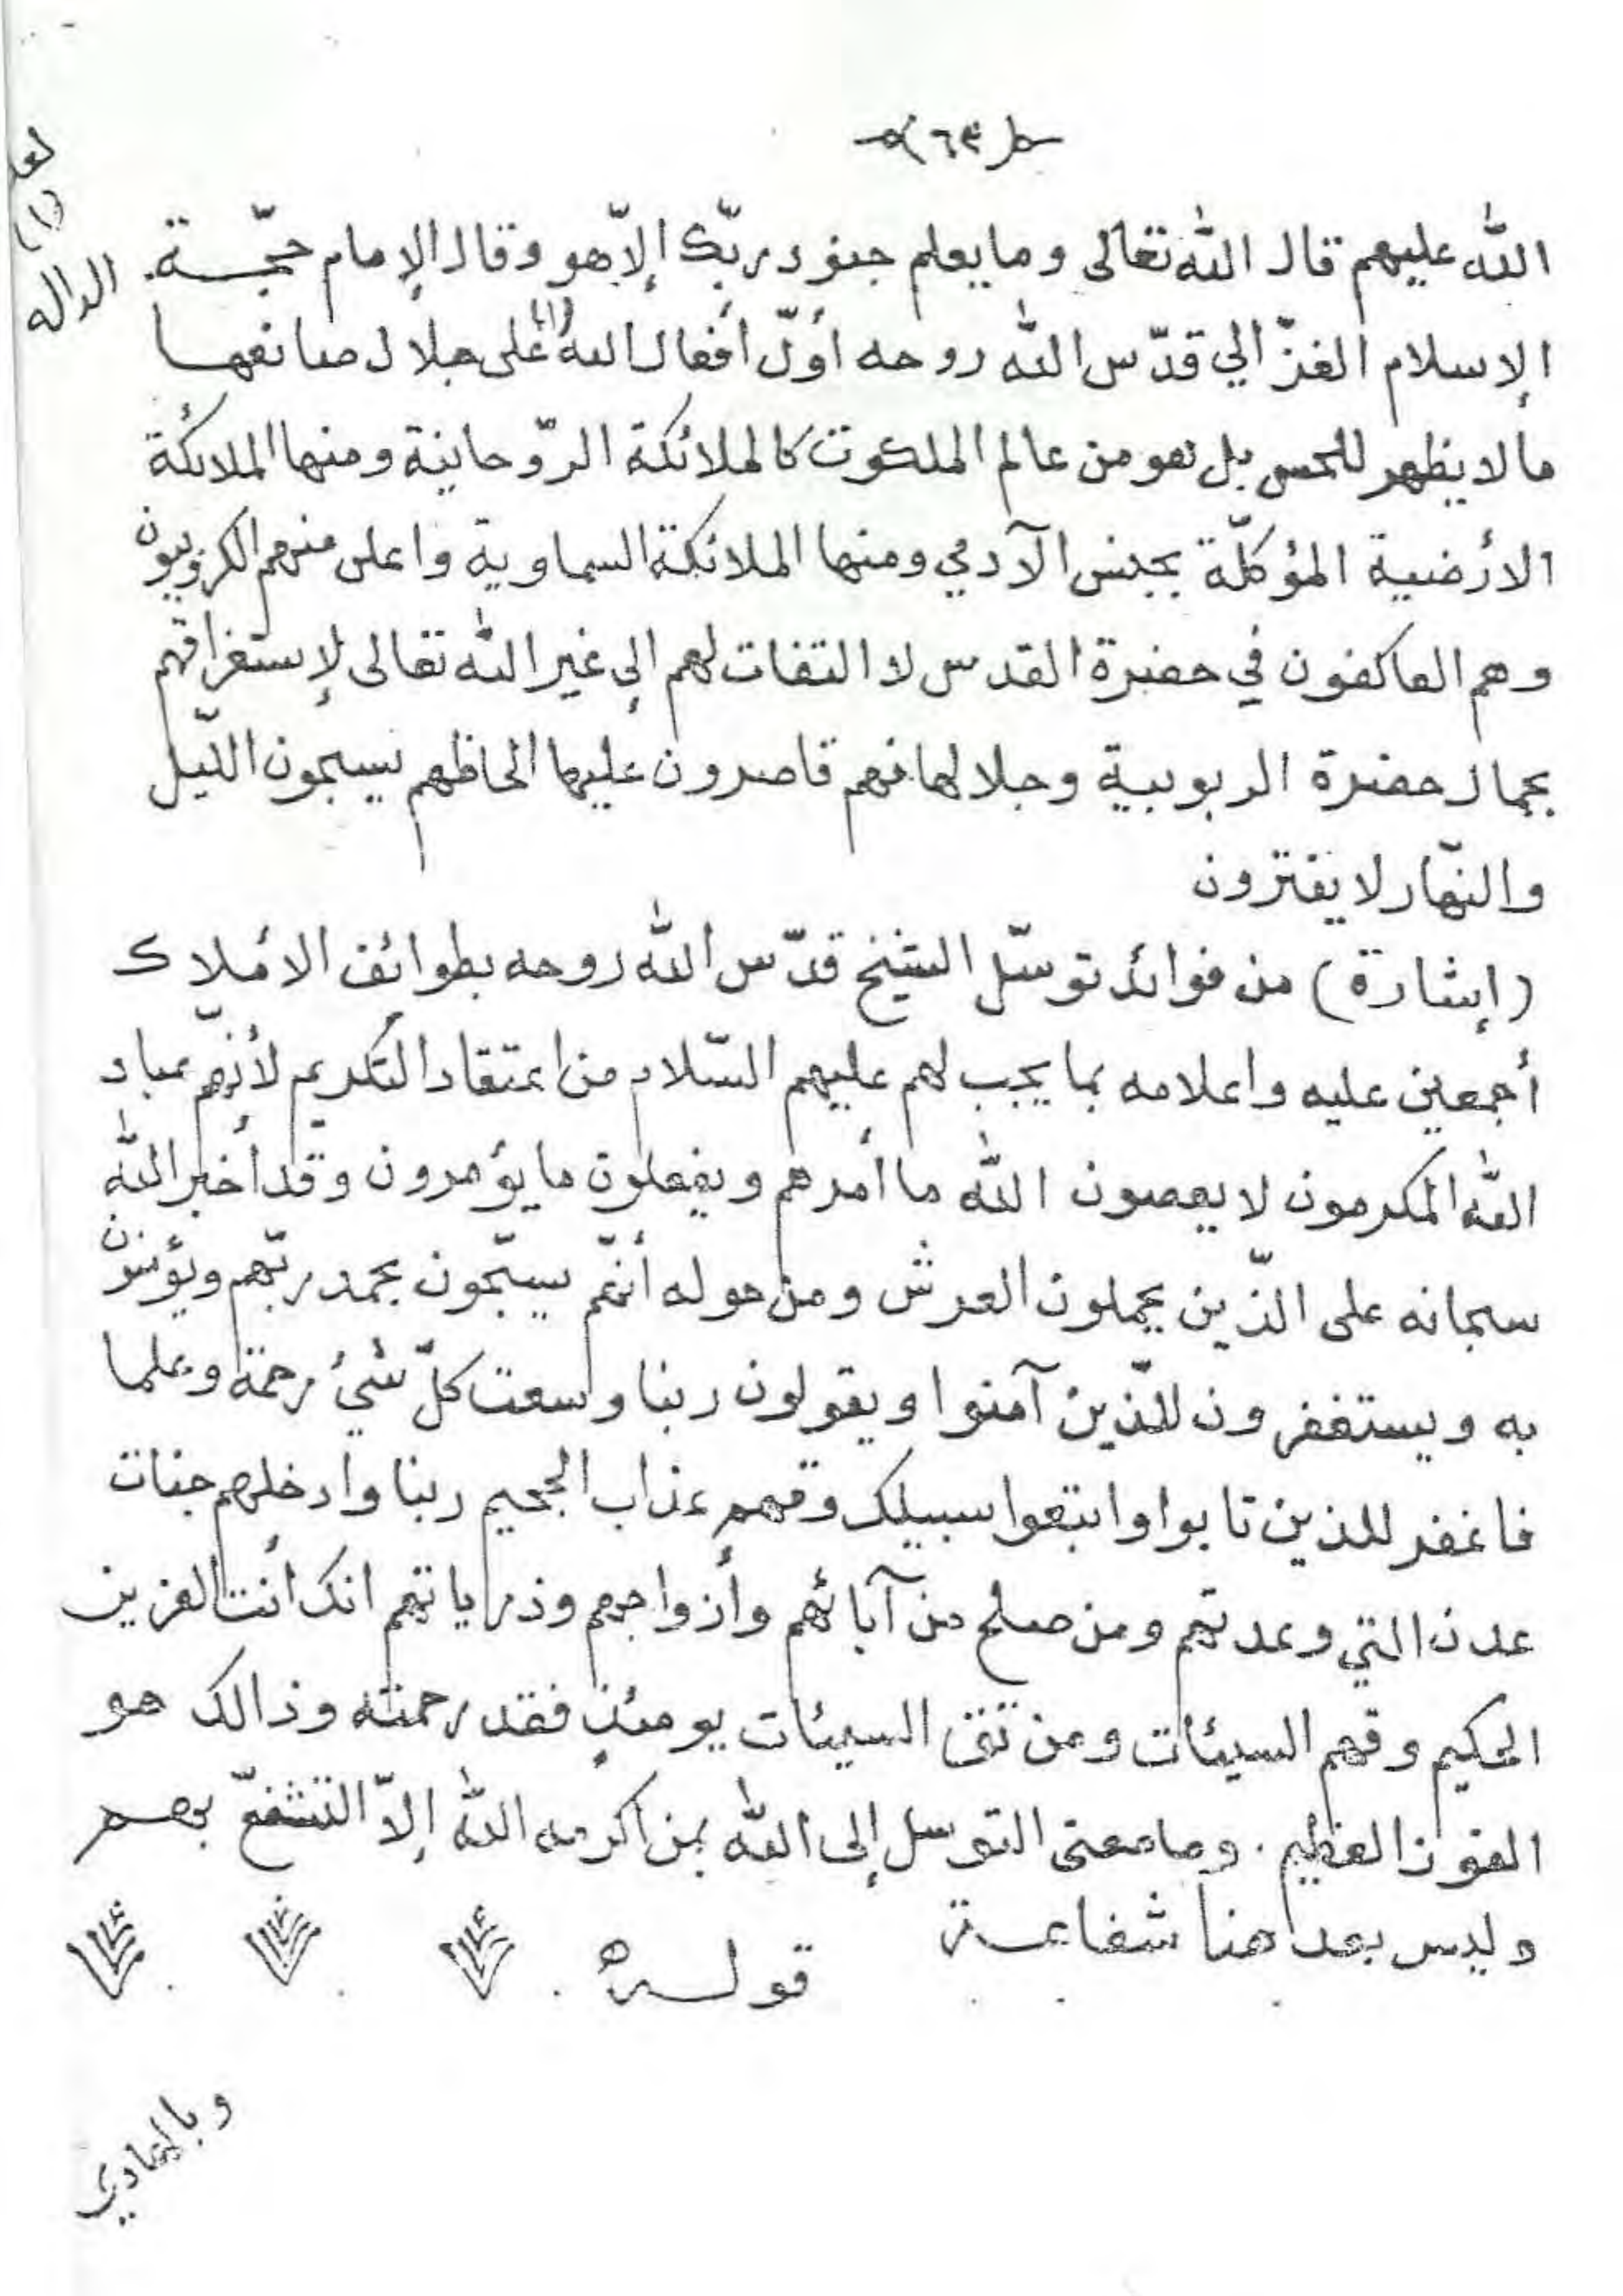 ٦٣
لعله
(١)
الداله
الله عليهم قال الله تعالى وما يعلم جنود ربّك إلاّ هو وقال الإمام حجّــة
الإسلام الغزّالي قدّس الله روحه أوّل أفعال الله (١) على جلال صانعهــا
ما لا يظهر للحس بل هو من عالم الملكوت كالملائكة الرّوحانية ومنها الملائكة
الأرضية المؤكلّة بجنس الآدمي ومنها الملائكة السماوية واعلى منهم الكروبيون
وهم العاكفون في حضرة القدس لا التفات لهم إلى غير الله تعالى لإستغراقهم
بجمال حضرة الربوبية وجلالها فهم قاصرون عليها الحاظهم يسبحون اللّيل
والنهّار لا يفترون
(إشارة) من فوائد توسّل الشيخ قدّس الله روحه بطوائف الأملاك
أجمعين عليه واعلامه بما يجب لهم عليهم السّلام من اعتقاد التكريم لأنهّم عباد
الله المكرمون لا يعصون الله ما أمرهم ويفعلون ما يؤمرون وقد أخبر الله
سبحانه على الّذين يحملون العرش ومن حوله أنهّم يسبّحون بحمد ربّهم ويؤمنون
به ويستغفرون للّذين آمنوا ويقولون ربنا وسعت كلّ شيءٍ رحمة وعلما
فاغفر للذين تابوا واتبعوا سبيلك وقهم عذاب الجحيم ربنا وادخلهم جنات
عدن التي وعدتهم ومن صلح من آبائهم وأزواجهم وذرياتهم انك أنت العزيز
الحكيم وقهم السيئات ومن تق السيئات يومئذٍ فقد رحمته وذالك هو
الفوز العظيم . وما معنى التوسل إلى الله بمن اكرمه الله إلاّ التشفعّ بهــم
وليس بعد هنا شفاعــة
قولــه
وبالهادي